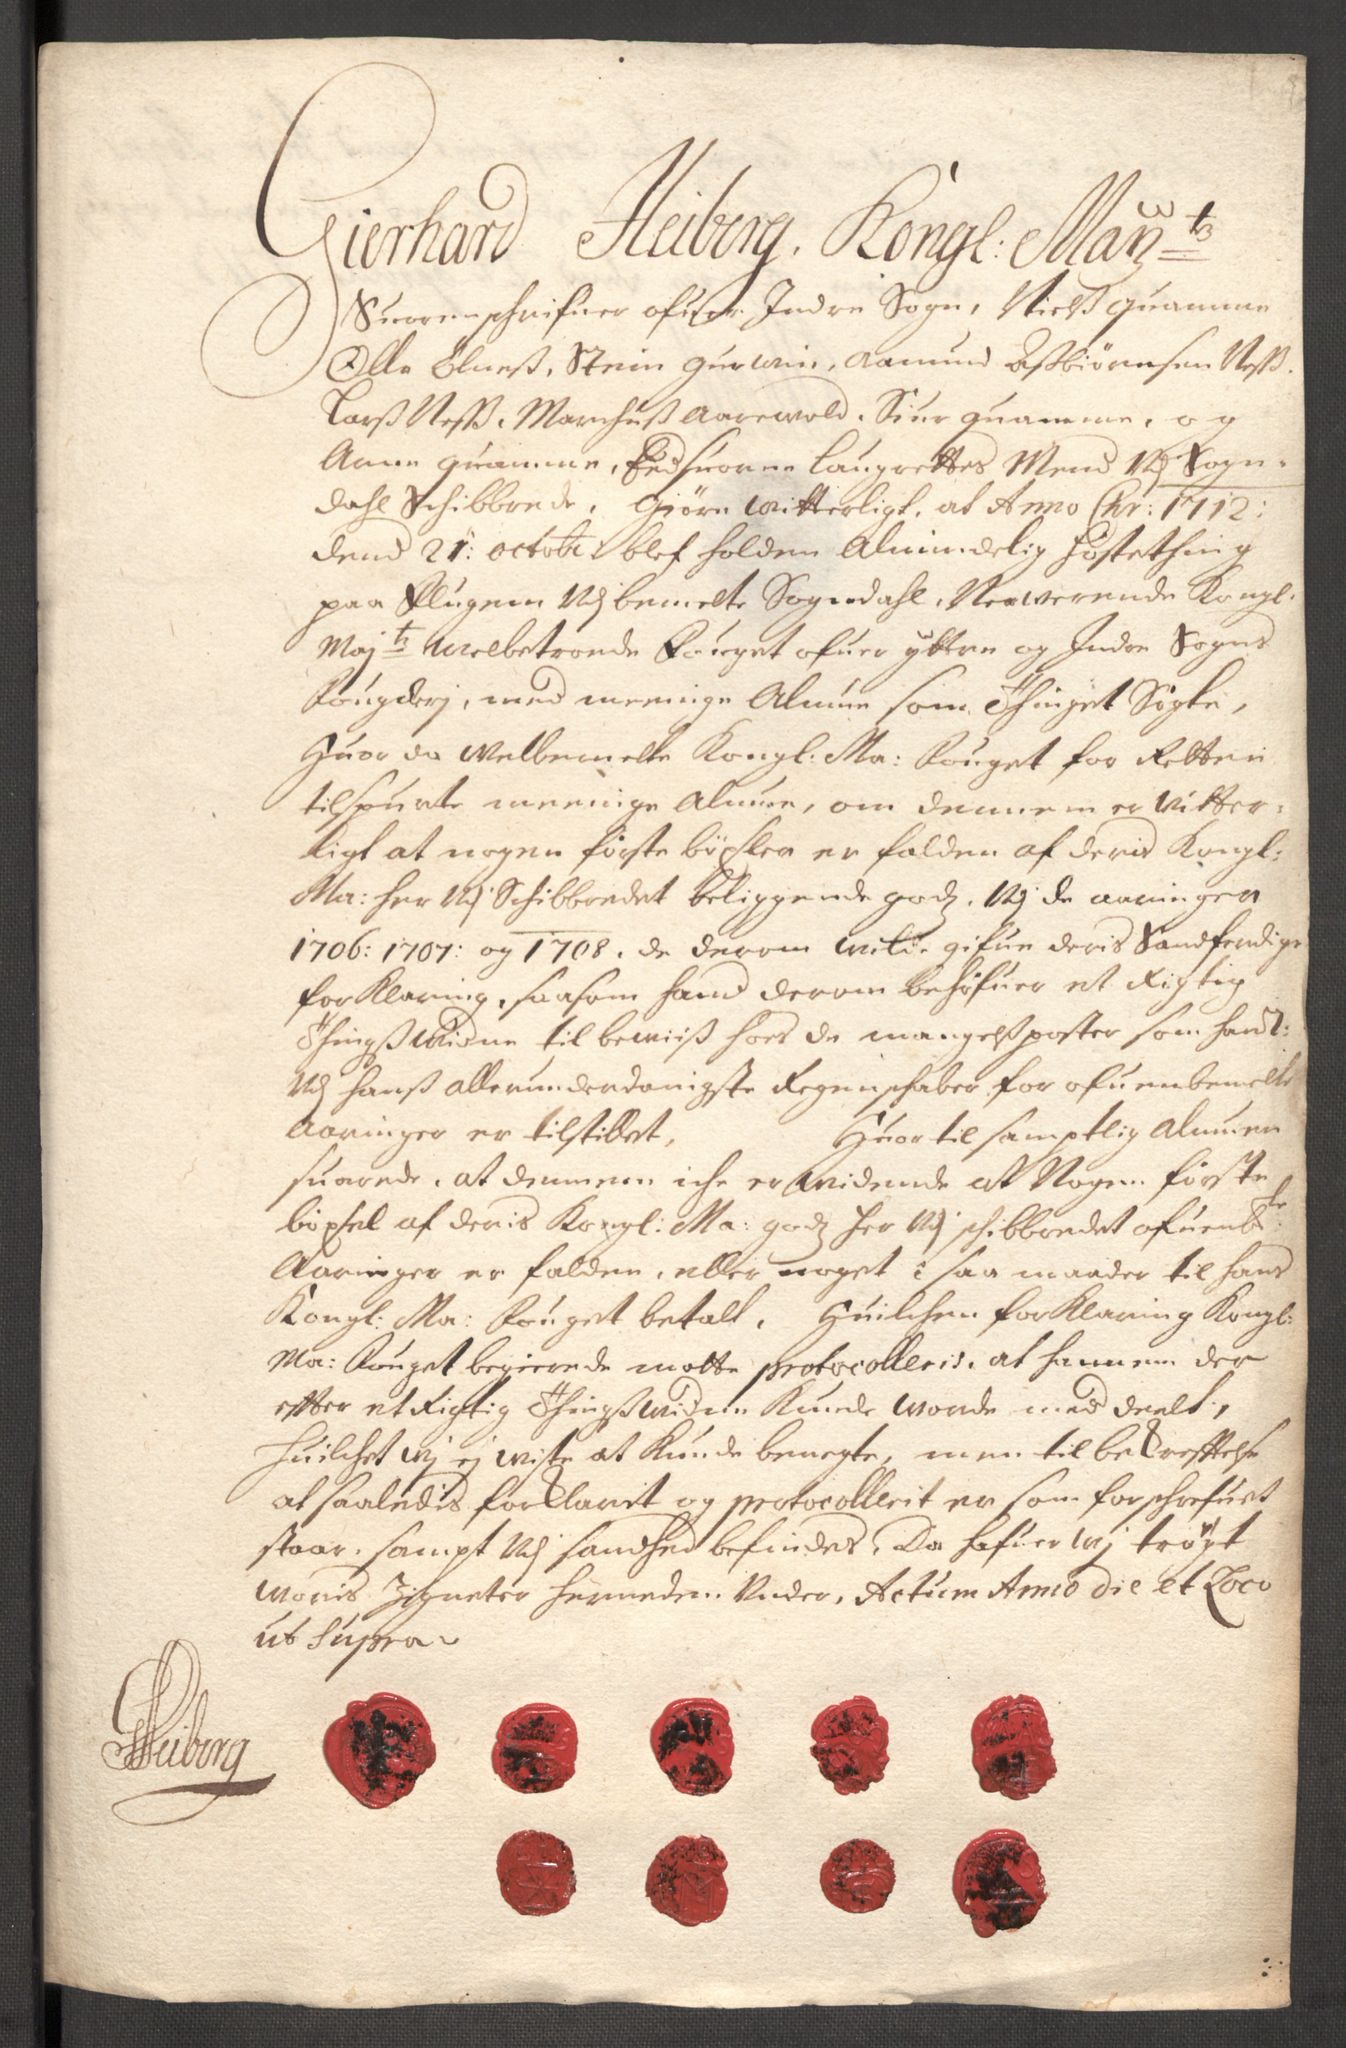 Gierhard Heiberg. Kongl: Maytz
Suorenschrifuer ofuer Indre Sogn, Nielß quamme
Olle Ølneß, Stein gurwin, Aamund Aßbiørnsen Neß.
Larß Neß. Marchuß Aarewold. Siur quamme, og
Arne quamme, Eedsuorne Laugrettes Mend Vdj Sogn-
dahl Schibbrede, Giøre witterligt, at Anno Chr: 1712:
dend 21: octobr: blef holden Almindelig høstething
paa Flugem Vdj bemelte Sogndahl, Nerwerende Kongl.
Majts welbetroede Fouget ofuer ÿttre og Indre Sogns
Fougderj, med meenige Almue som Thinget Søgte,
Huor da welbemelte Kongl: Ma: Fouget for Retten
tilspurte meenige Almue, om dennem er Vitter-
ligt at nogen første bøxler er falden af deris Kongl:
Ma: her Vdj Schibbredet beliggende godz, Vdj de aaringer
1706: 1707: og 1708, de derom wilde gifue deris Sandferdige
forKlaring, saasom hand derom behøfuer et Rigtig
Thingßwidne til bewiiß hoes de mangelßposter som hand
Vdj hanß allerunderdanigste Regenschaber for ofuenbemelte
Aaringer er tilstillet, Huortil samptlig Almuen
suarede, at dennem iche er widende at Nogen første
bøxsel af deris Kongl: Ma: godz her Vdj schibbredet ofuenbte:
Aaringer er falden, eller noget i saa maader til hans
Kongl: Ma: Fouget betalt, Huilchen forKlaring Kongl:
Ma: Fouget begierede motte protocolleris, at hannem der
efter et Rigtig Thingßwidne Kunde worde med deelt,
huilchet wj ej wiste at Kunde benegte, men til bekreftelse
at saaledis forklarit og protocollerit er som forschrefuet
staar, sampt Vdj sandhed befindes, Da hafuer wj trøgt
woris Zigneter herneden Vnder, Actum Anno die et Loco
ut supra
Heiberg